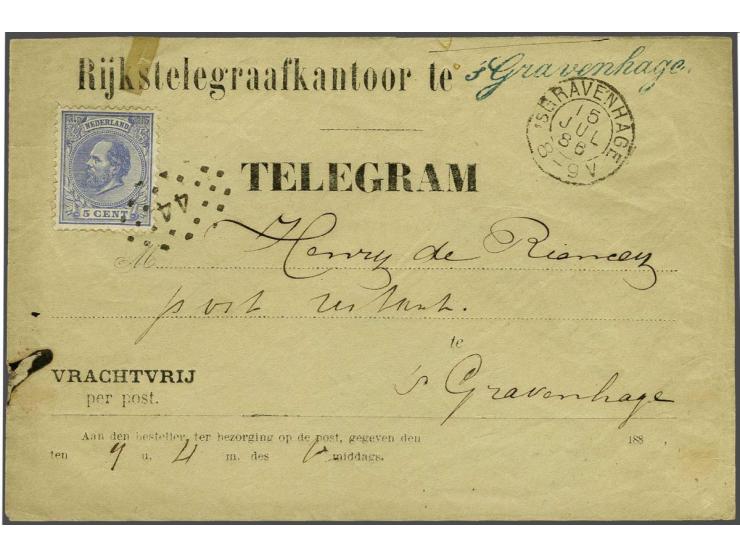 Rijkstelegraafkantoor te 's Gravenhage.
'SGRAVENHAGE
15
JUL
86
8-9V
NEDERLAND
5 CENT
44
TELEGRAM
M Henry de Riancey
post restant.
te
's Gravenhage
VRACHTVRIJ
per post.
Aan den besteller, ter bezorging op de post, gegeven den 188
ten 9 u. 4 m. des middags.